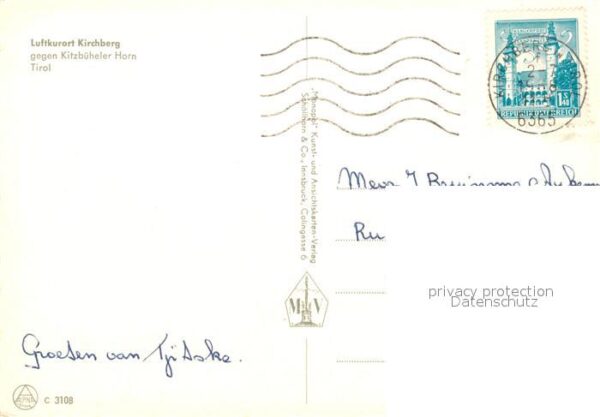 Luftkurort Kirchberg
gegen Kitzbüheler Horn
Tirol
KIRCHBERG TIROL
6365
REPUBLIK ÖSTERREICH
„Monopol" Kunst- und Ansichtskarten-Verlag
Schöllhorn & Co., Innsbruck, Colingasse 6
M V
Ru
privacy protection
Datenschutz
Groeten van Tjitske.
C 3108